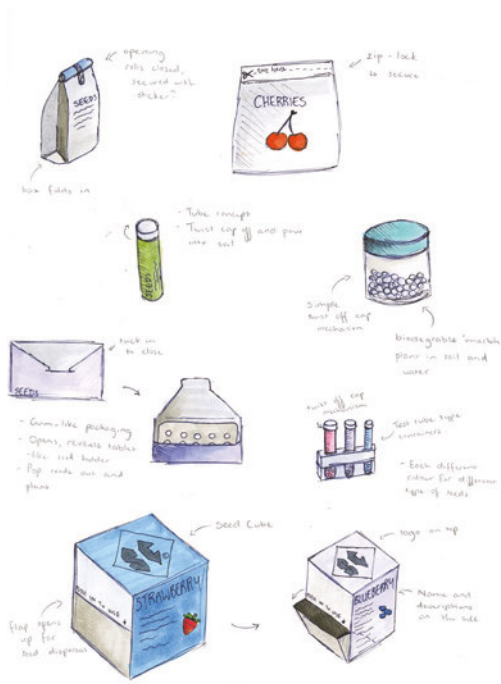 opening
rolls closed,
secured with
sticker?
SEEDS
box folds in
zip-lock
to secure
CHERRIES
- Tube concept
- Twist cap off and pour
into soil
SEEDS
Simple
twist off cap
mechanism
plant in soil and
water
tuck in
to close
SEEDS
- Gum-like packaging
- Opens, reveals tablet
-like seed holder
- Pop seeds out and
plant
twist off cap
mechanism
Test tube type
containers
- Each different
colour for different
type of seeds
Seed Cube
STRAWBERRY
PUSH IN TO USE
flap opens
up for
seed dispersal
logo on top
BLUEBERRY
PUSH IN TO USE
Name and
descriptions
on the side